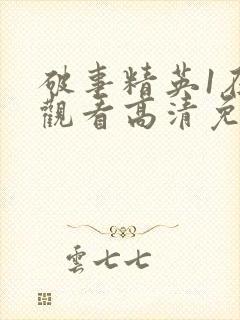 破事精英1在
觀看高清免
雲七七